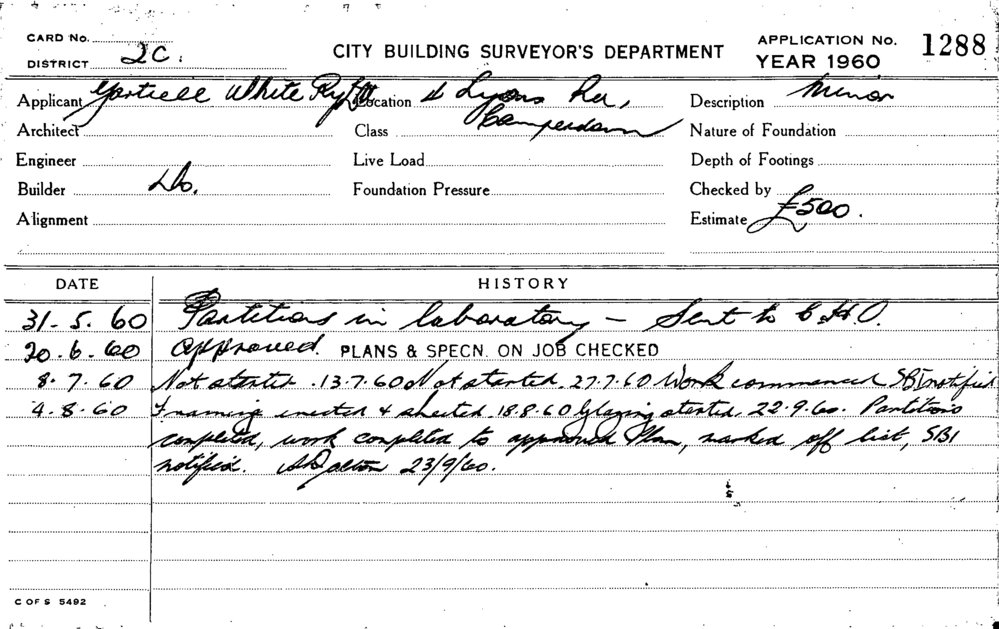 CARD No.
DISTRICT 2C.
CITY BUILDING SURVEYOR'S DEPARTMENT
APPLICATION No. 1288
YEAR 1960
Applicant White Pty Ltd Location Lyons Rd,
Camperdown
Description Minor
Architect Class Nature of Foundation
Engineer Live Load Depth of Footings
Builder Do. Foundation Pressure Checked by
Alignment Estimate £500.
DATE HISTORY
31-5-60 Partitions in laboratory – Sent to C.H.O.
20-6-60 Approved. PLANS & SPECN. ON JOB CHECKED
8.7.60 Not started. 13.7.60 Not started. 27.7.60 Work commenced SBI notified
4.8.60 Framing erected & sheeted. 18.8.60 Glazing started. 22.9.60. Partitions
completed, work completed to approved Plan, marked off list, SBI
notified. 23/9/60.
C OF S 5492